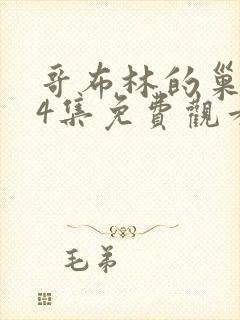 哥布林的巢
4集免費觀
毛弟